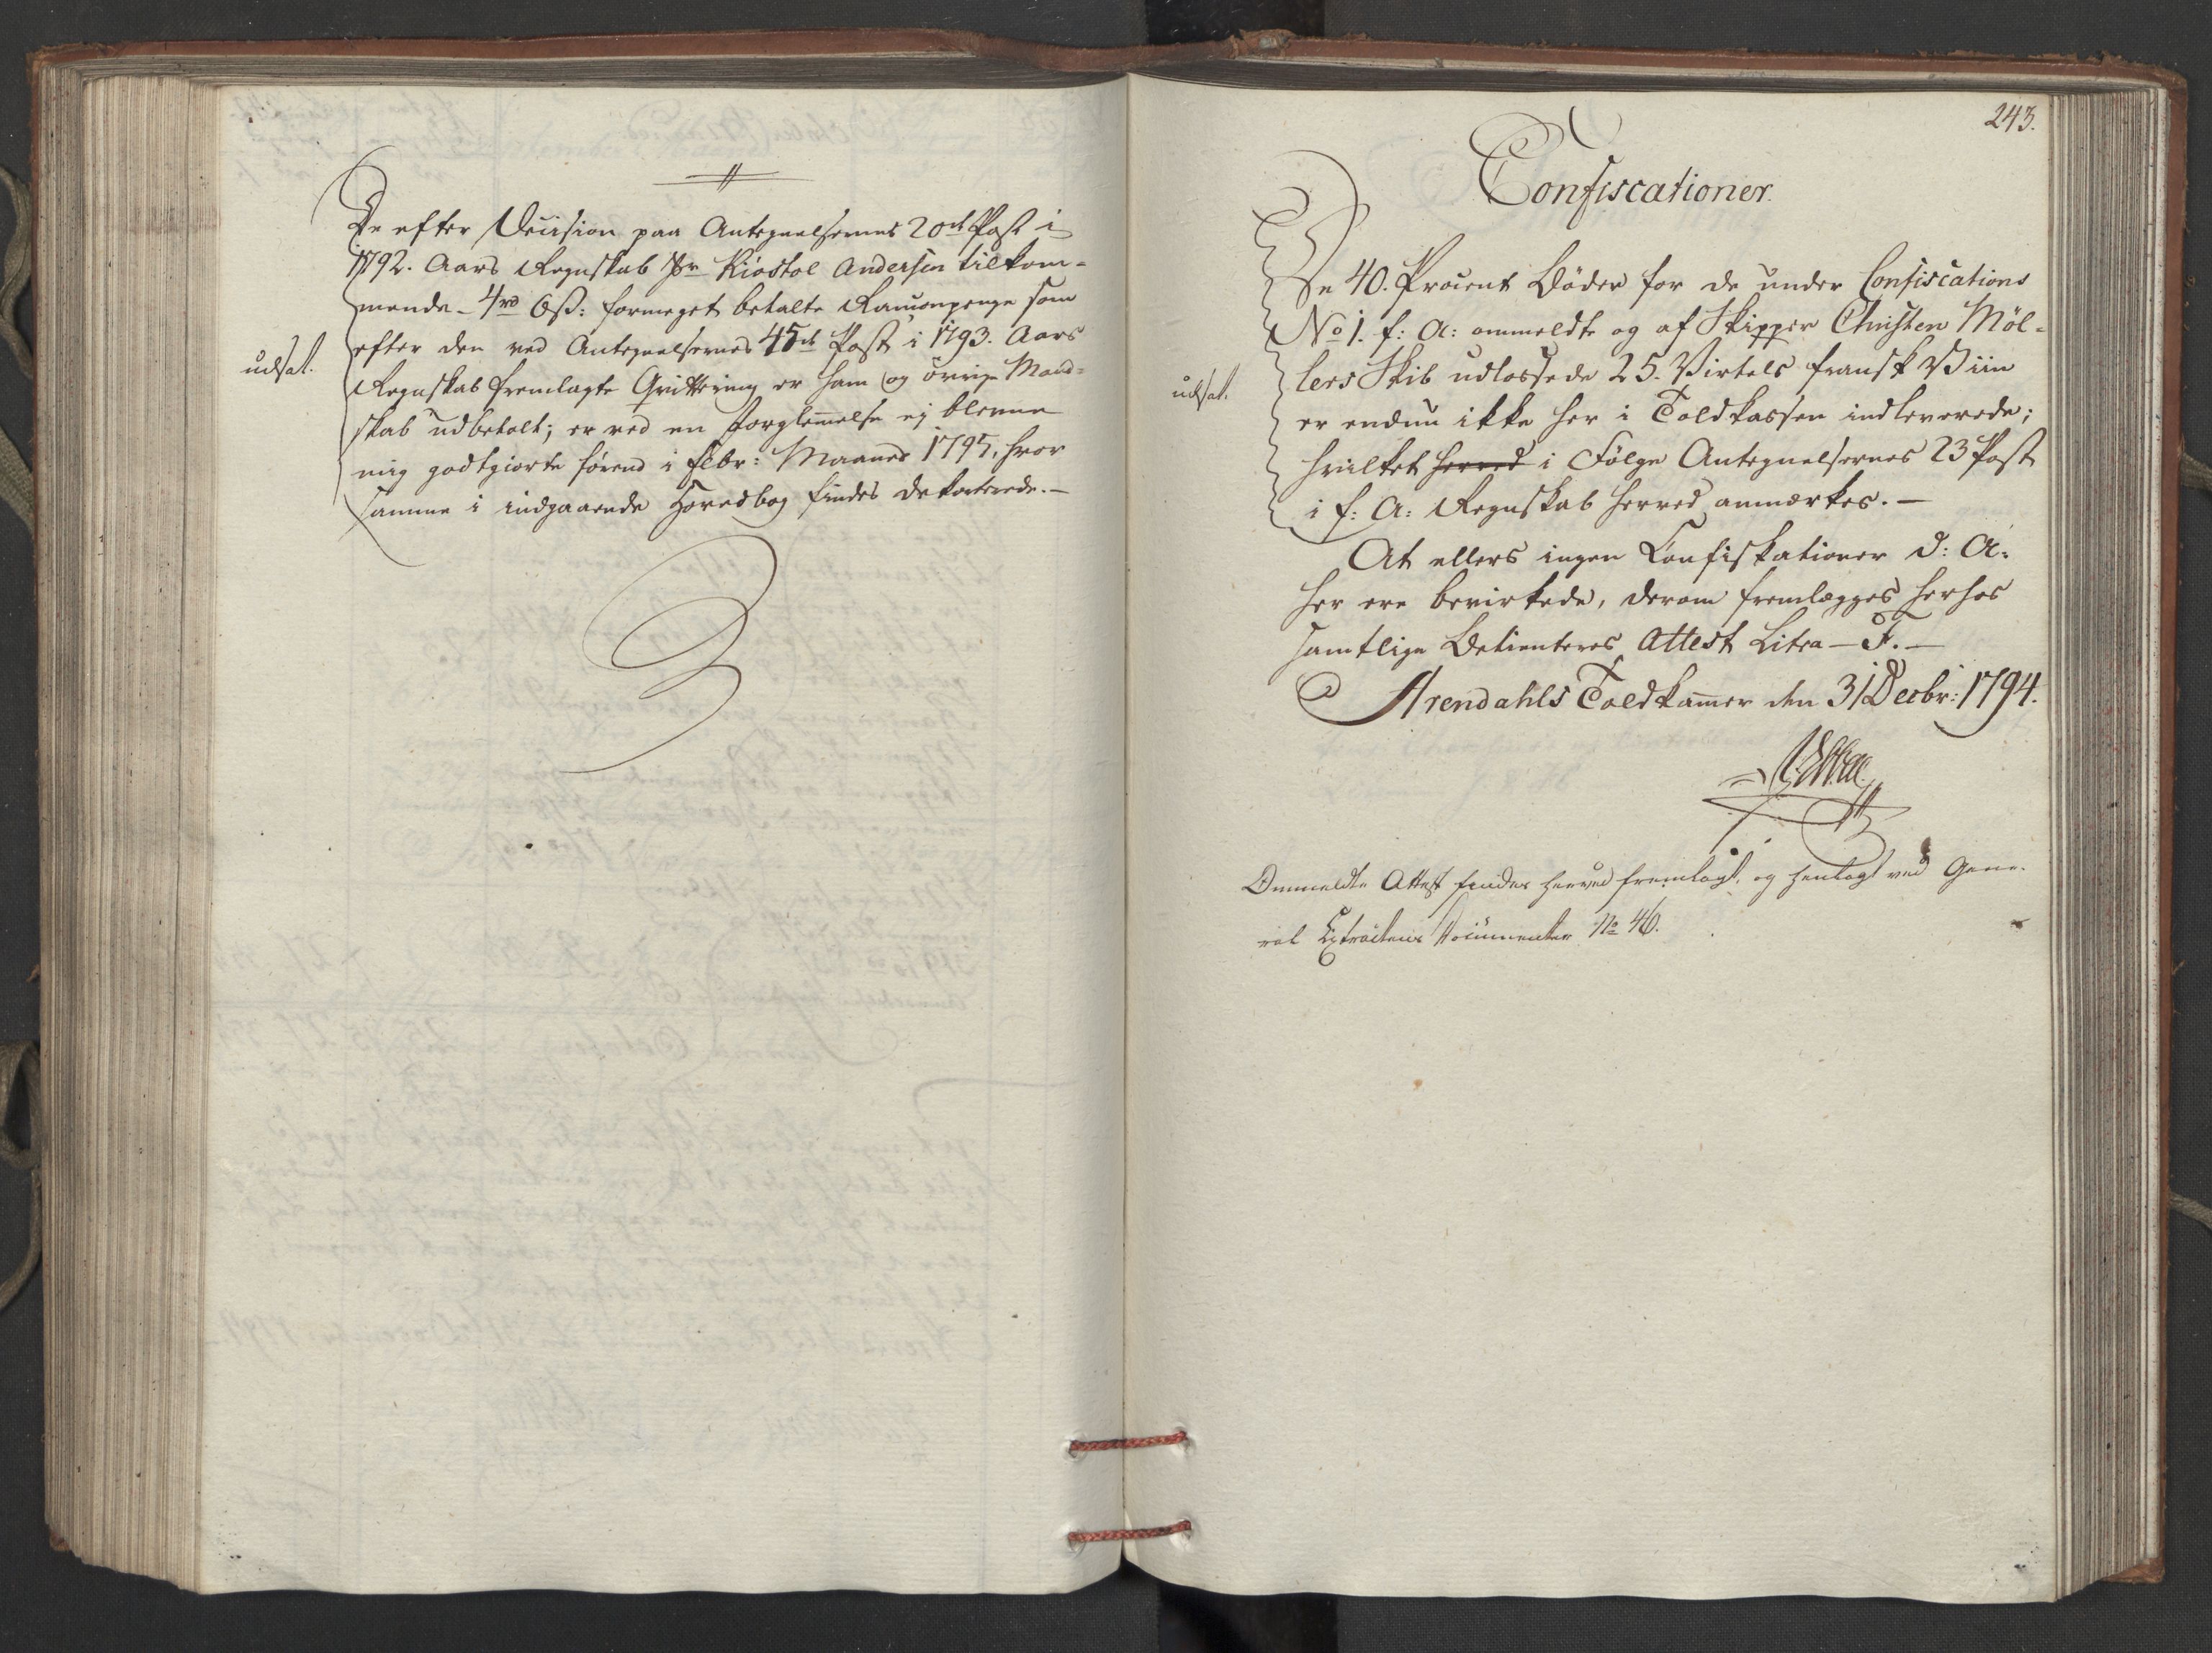 De efter Decision paa Antegnelsernes 20de Post i
1792. Aars Regnskab Sr Kiøstol Andersen tilkom-
mende 4rd 6ß: formeget betalte Rancionpenge som
efter den ved Antegnelsernes 45de Post i 1793. Aars
udsat.
Regnskab fremlagte Qvittering er ham og øvrige Mand-
skab udbetalt; er ved en Forglemmelse ej blevne
mig godtgiorte førend i Febr: Maaned 1795, hvor
samme i indgaaende Hovedbog findes decorterede. —
243.
Confiscationer.
De 40. Procent Bøder for de under Confiscations
No 1. f: A: ommeldte og af Skipper Christen Møl-
lers Skib udlossede 25. Virtels fransk Viin
udsat.
er endnu ikke her i Toldkassen indleverede;
hvilket herved i Følge Antegnelsernes 23 Post
i f: A: Regnskab herved anmærkes. —
At ellers ingen Confiskationer d: A:
her ere bevirkede, derom fremlægges herhos
samtlige Betienteres Attest Litra — F. —
Arendahls Toldkammer den 31 Decbr: 1794.
Ommeldte Attest findes herved fremlagt, og henlagt ved Gene-
ral Extractens Documenter No 46.